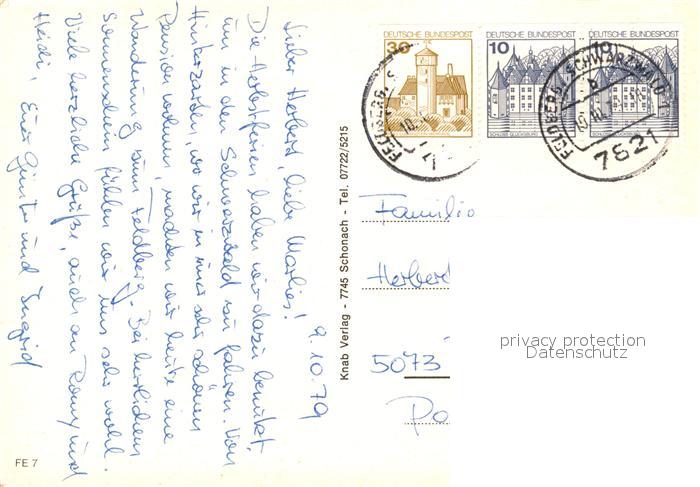 9.10.79
Lieber Herbert, liebe Marlies!
Die Herbstferien haben wir dazu benutzt,
um in den Schwarzwald zu fahren. Von
Hinterzarten, wo wir in einer sehr schönen
Pension wohnen, machten wir heute eine
Wanderung zum Feldberg. Bei herrlichem
Sonnenschein fühlen wir uns sehr wohl.
Viele herzliche Grüße, auch an Romy und
Heidi, Eure Günter und Ingrid
FE 7
Knab Verlag - 7745 Schonach - Tel. 07722/5215
DEUTSCHE BUNDESPOST
30
DEUTSCHE BUNDESPOST
10
DEUTSCHE BUNDESPOST
10
FELDBERG, S
FELDBERG, SCHWARZWALD 1
b
7821
Familie
Herbert
5073
privacy protection
Datenschutz